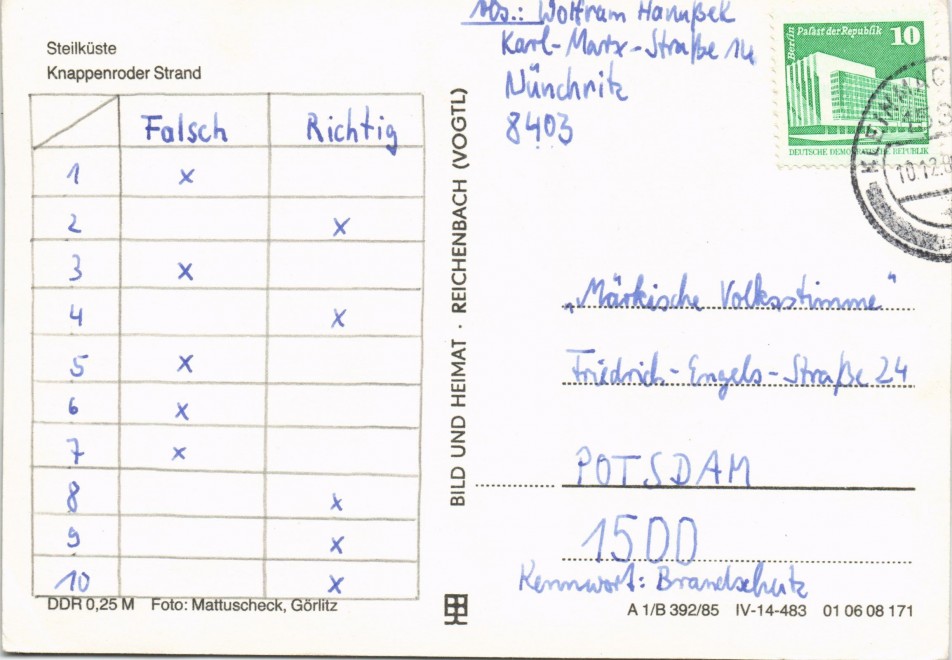 Steilküste
Knappenroder Strand
Falsch Richtig
1 x
2 x
3 x
4 x
5 x
6 x
7 x
8 x
9 x
10 x
DDR 0,25 M Foto: Mattuscheck, Görlitz
BILD UND HEIMAT · REICHENBACH (VOGTL)
Abs.: Wolfram Hanußek
Karl-Marx-Straße 14
Nünchritz
8403
Berlin Palast der Republik 10
DEUTSCHE DEMOKRATISCHE REPUBLIK
KLEINMAC
10.12.8
„Märkische Volksstimme"
Friedrich-Engels-Straße 24
POTSDAM
1500
Kennwort: Brandschutz
A 1/B 392/85 IV-14-483 01 06 08 171